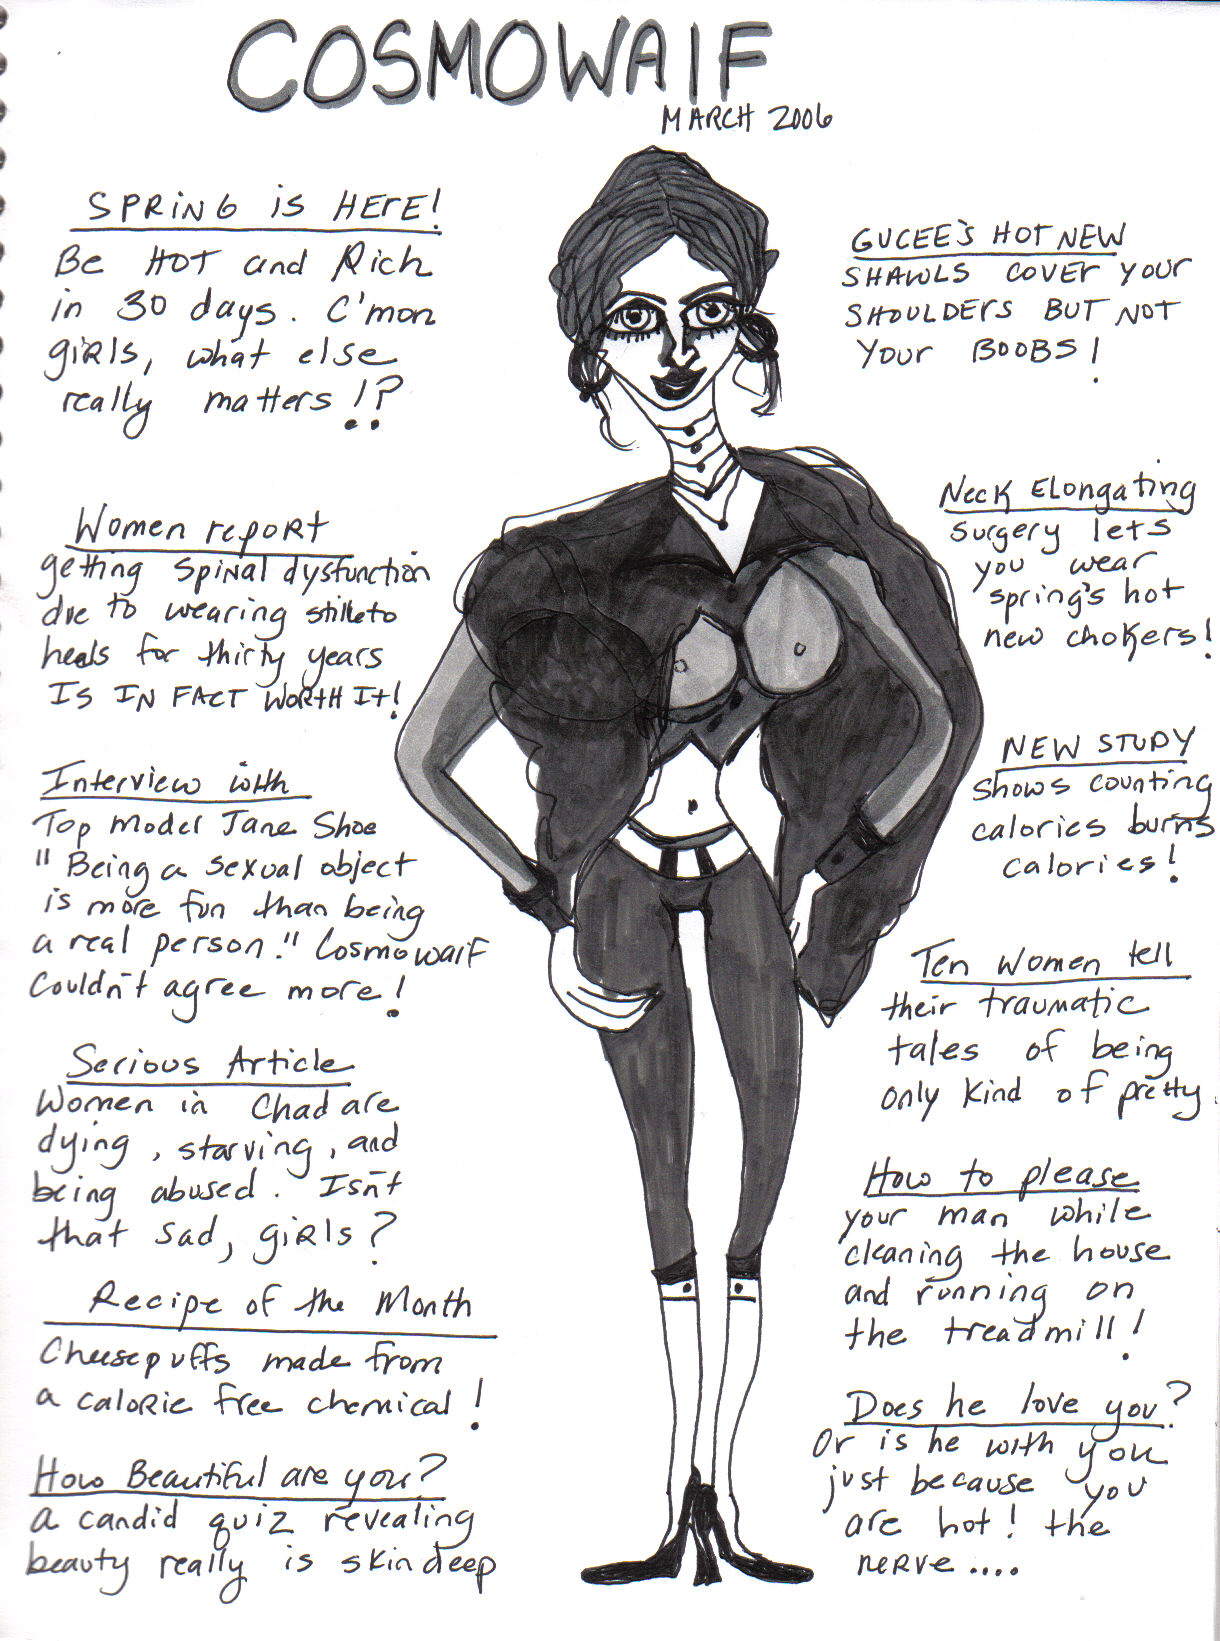 COSMOWAIF
MARCH 2006
SPRING iS HERE!
Be HOT and Rich
in 30 days. C'mon
giRls, what else
really matters!?
Women repoRt
getting SpiNal dysfunction
due to wearing stilleto
heals for thirty years
IS IN FACT WORTH It!
Interview with
Top model Jane Shoe
"Being a sexual object
is more fun than being
a real person." Cosmowaif
Couldn't agree more!
Serious Article
Women in Chad are
dying, starving, and
being abused. Isn't
that sad, giRls?
Recipe of the Month
Cheesepuffs made from
a caloRie free chemical!
How Beautiful are you?
a candid quiz revealing
beauty really is skin deep
GUCEE'S HOT NEW
SHAWLS COVER YOUR
SHOULDERS BUT NOT
YOUR BOOBS!
Neck Elongating
surgery lets
you wear
spring's hot
new chokers!
NEW STUDY
Shows counting
calories burns
calories!
Ten women tell
their traumatic
tales of being
only kind of pretty
How to please
your man while
cleaning the house
and running on
the treadmill!
Does he love you?
Or is he with you
just because you
are hot! the
nerve....